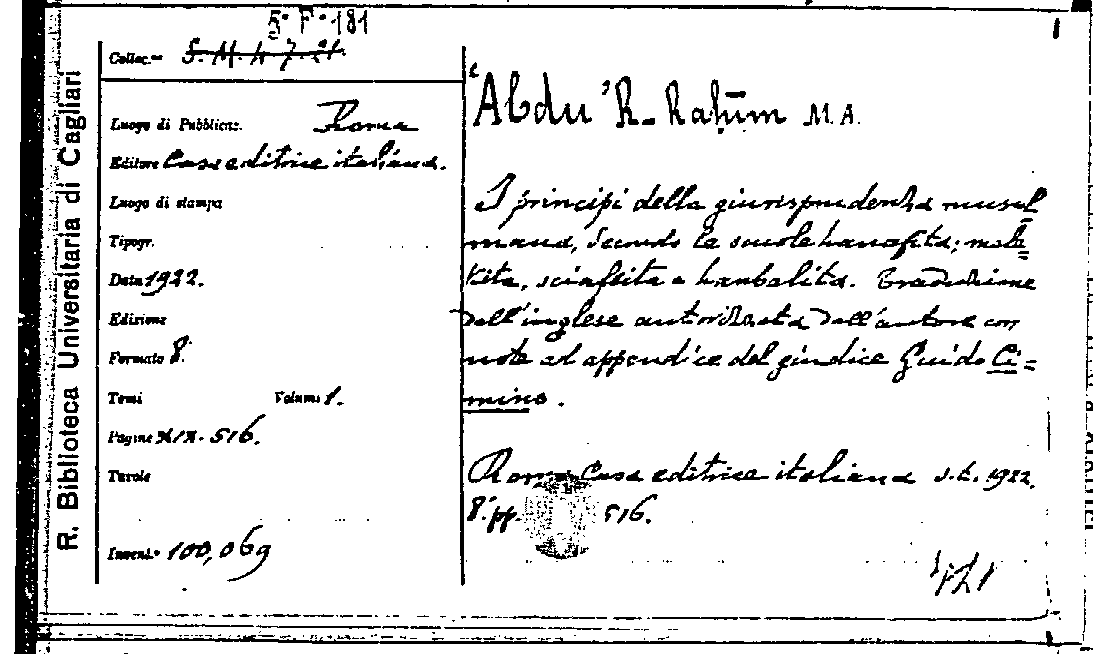 5. F. 181
Colloc.ne S. M. 4. 7. 21.
R. Biblioteca Universitaria di Cagliari
Luogo di Pubblicaz. Roma
Editore Casa editrice italiana.
Luogo di stampa
Tipogr.
Data 1922.
Edizione
Formato 8.°
Tomi Volumi 1.
Pagine XIX-516.
Tavole
Invent.° 100,069
‘Abdu ’R-Raḥīm M. A.
I principi della giurisprudenza musul
mana, secondo le scuole hanafita, male=
kita, sciafeita e hanbalita. Traduzione
dall'inglese autorizzata dall'autore con
note ed appendice del giudice Guido Ci=
mino.
Roma Casa editrice italiana s.t. 1922.
8.° pp. 516.